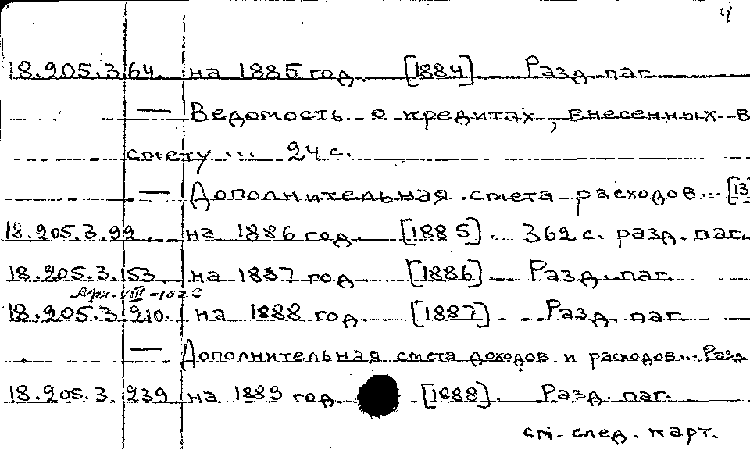 4
18.205.3.64 на 1885 год [1884] Разд. паг.
— Ведомость о кредитах, внесенных в
смету ... 24 с.
— Дополнительная смета расходов... [13
18.205.3.99 на 1886 год [1885]. 362 с. разд. паг.
18.205.3.153 на 1887 год [1886] Разд. паг.
18.205.3.210. на 1888 год. [1887] Разд. паг.
— Дополнительная смета доходов и расходов... Разд
18.205.3.239 на 1889 год [1888]. Разд. паг.
см. след. карт.